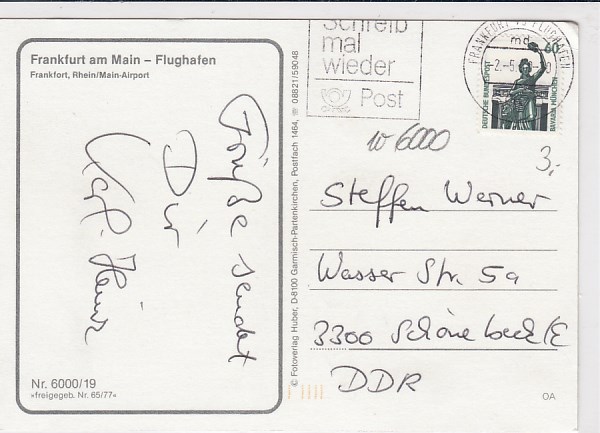 Frankfurt am Main – Flughafen
Frankfurt, Rhein/Main-Airport
Grüße sendet
Dir
Karl-Heinz
Nr. 6000/19
»freigegeb. Nr. 65/77«
© Fotoverlag Huber, D-8100 Garmisch-Partenkirchen, Postfach 1464, ☎ 08821/59048
Schreib
mal
wieder
Post
FRANKFURT FLUGHAFEN
md
60
DEUTSCHE BUNDESPOST
BAVARIA MÜNCHEN
w 6000
3,-
Steffen Werner
Wasser Str. 5a
3300 Schönebeck/E
DDR
OA